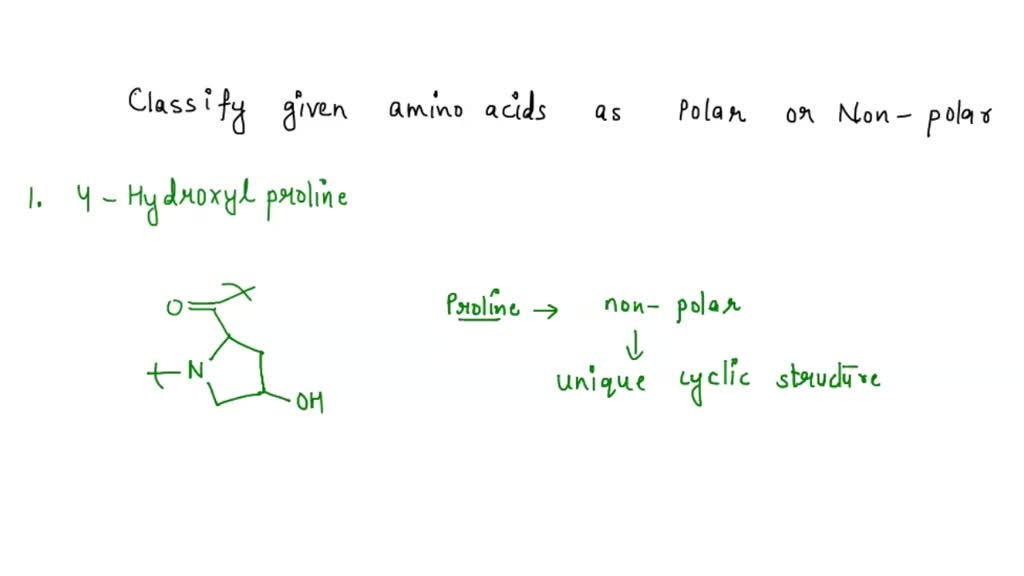 Classify given amino acids as Polar or Non-polar
1. 4-Hydroxyl proline
O
Proline → non-polar
N
↓
unique cyclic structure
OH